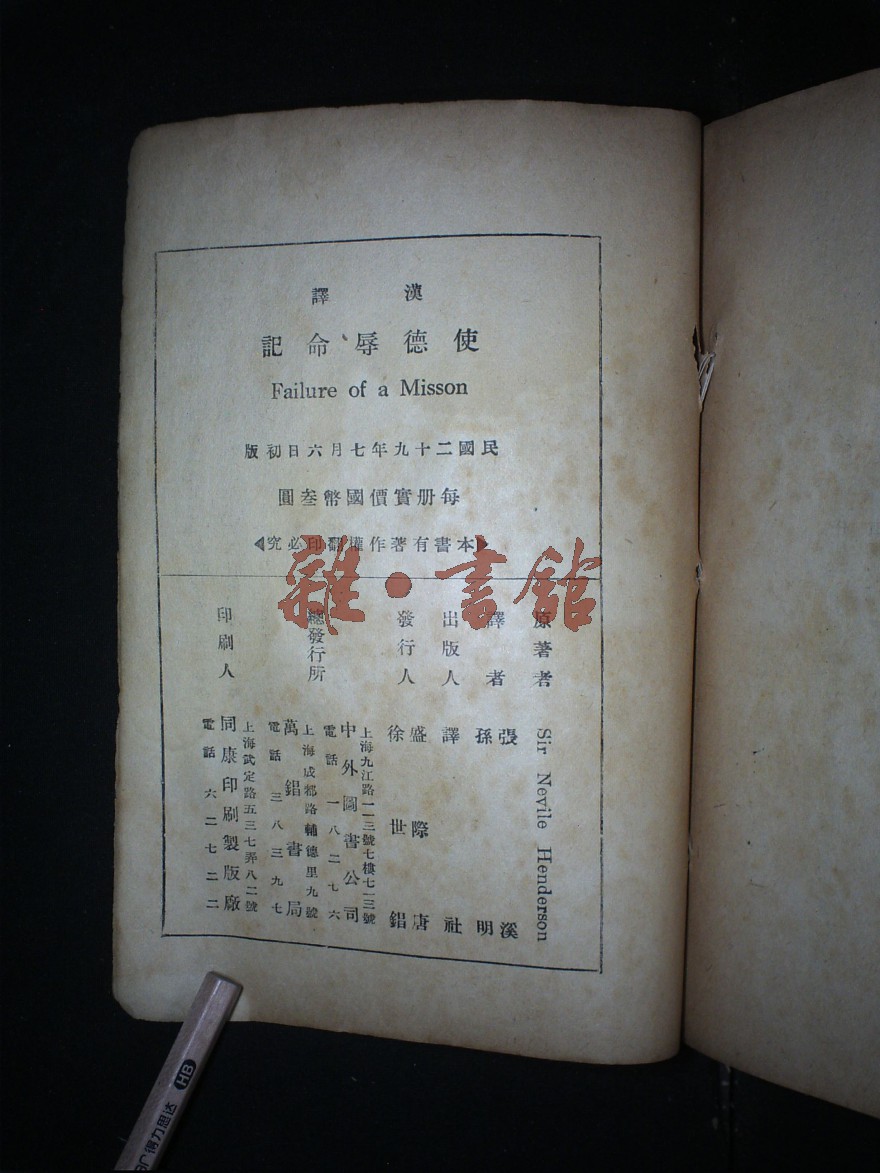 漢譯
使德辱命記
Failure of a Misson
民國二十九年七月六日初版
每册實價國幣叁圓
▶本書有著作權翻印必究◀
原著者 Sir Nevile Henderson
譯者 張溪
孫明
出版人 譯社
發行人 盛際唐
徐世錩
總發行所 上海九江路一一三號七樓七一三號
中外圖書公司
電話 一八二七六
上海成都路輔德里九號
萬錩書局
電話 三八三九七
印刷人 上海武定路五三七弄八二號
同康印刷製版廠
電話 六二七二二
雜·書館
得力思达 HB